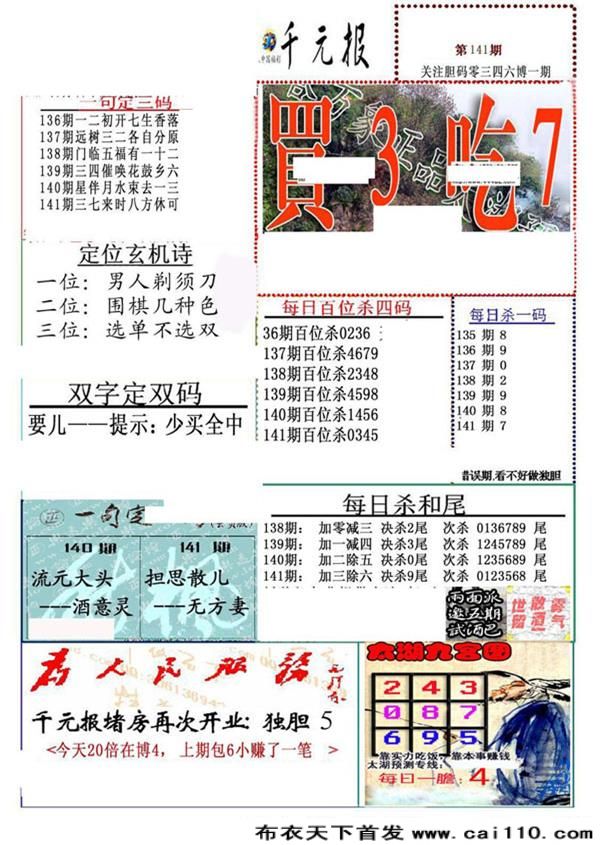 千元报
第141期
关注胆码零三四六博一期
一句定三码
136期一二初开七生香落
137期远树三二各自分原
138期门临五福有一十二
139期三四催唤花鼓乡六
140期星伴月水束去一三
141期三七来时八方休可
買 3 吃 7
定位玄机诗
一位：男人剃须刀
二位：围棋几种色
三位：选单不选双
每日百位杀四码
36期百位杀0236
137期百位杀4679
138期百位杀2348
139期百位杀4598
140期百位杀1456
141期百位杀0345
每日杀一码
135 期 8
136 期 9
137 期 0
138 期 2
139 期 9
140 期 8
141 期 7
错误期,看不好做独胆
双字定双码
要儿——提示：少买全中
一句定
140期
流元大头
---酒意灵
141 期
担思散儿
---无方妻
每日杀和尾
138期： 加零减三 决杀2尾 次杀 0136789 尾
139期： 加一减四 决杀3尾 次杀 1245789 尾
140期： 加二除五 决杀0尾 次杀 1235689 尾
141期： 加三除六 决杀9尾 次杀 0123568 尾
两面派
邀五期
试酒巴
世散雾
留道气
为人民服务
千元报堵房再次开业：独胆 5
<今天20倍在博4，上期包6小赚了一笔 >
太湖九宫图
2 4 3
0 8 7
6 9 5
靠实力吃饭，靠本事赚钱
太湖预测专线：
每日一胆：4
布衣天下首发 www.cai110.com